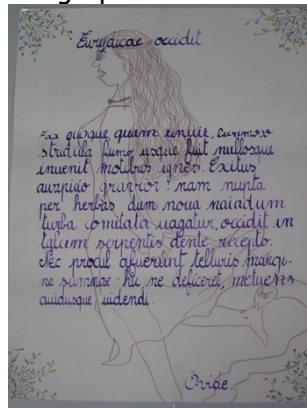 Eurydicae occidit
Fax quoque quam tenuit, lacrimoso
stridula fumo usque fuit nullosque
invenit motibus ignes. Exitus
auspicio gravior: nam nupta
per herbas dum nova naiadum
turba comitata vagatur, occidit in
talum serpentis dente recepto.
Nec procul afuerunt telluris margi-
ne summae: hic, ne deficeret, metuens
avidusque videndi.
Ovide.